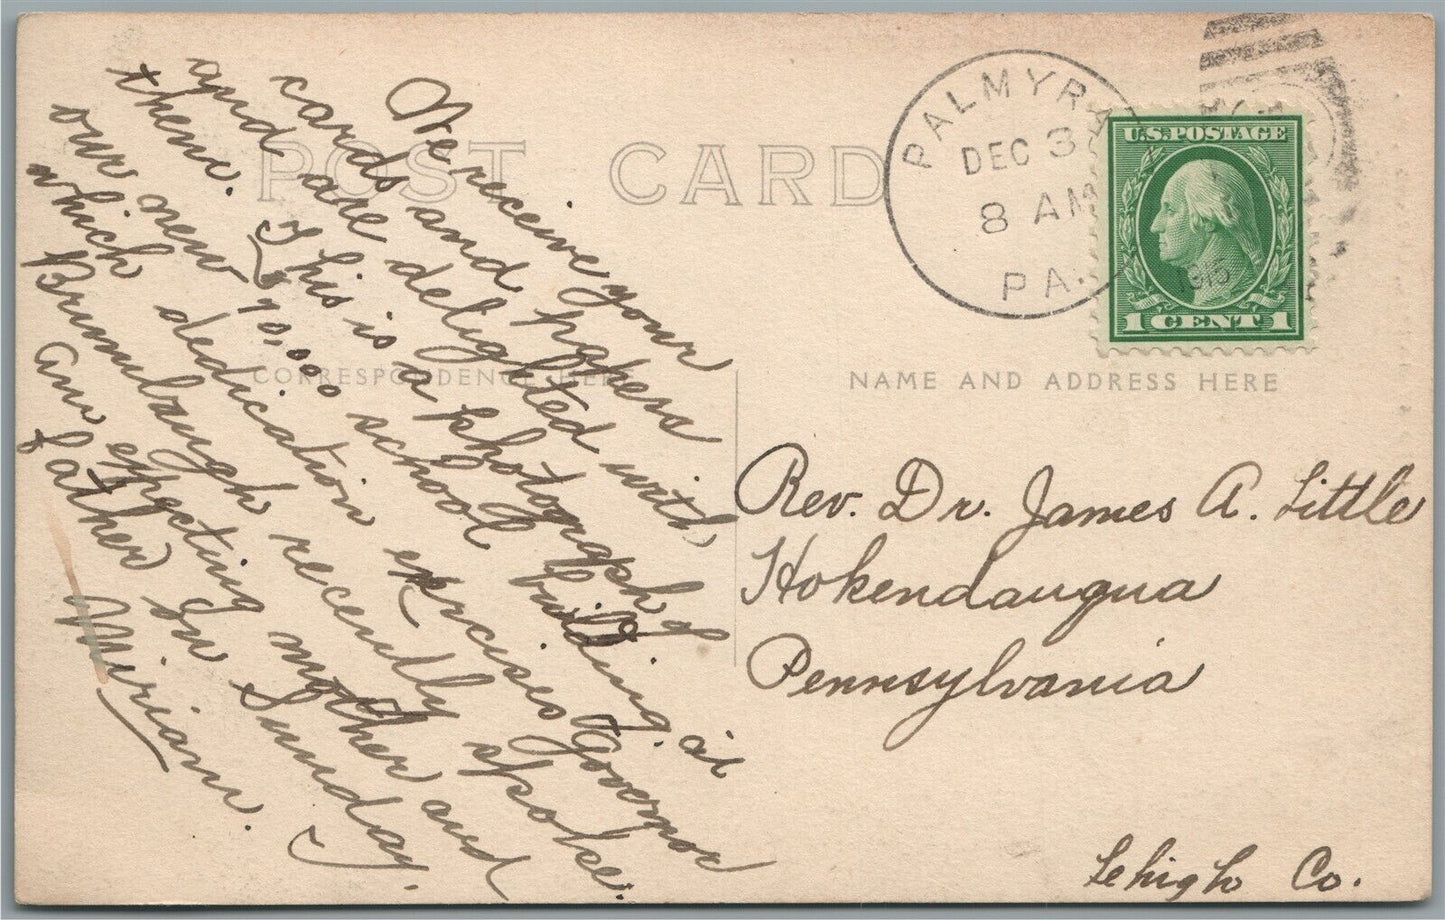 We receive your
cards and papers
and are delighted with
them. This is a photograph of
our new $70,000 school building, at
which dedication exercises Governor
Brumbaugh recently spoke.
Am expecting mother and
father In Sunday.
Miriam.
POST CARD
CORRESPONDENCE HERE
NAME AND ADDRESS HERE
PALMYRA
DEC 3
8 AM
1915
PA.
U.S. POSTAGE
1 CENT 1
Rev. Dr. James A. Little
Hokendauqua
Pennsylvania
Lehigh Co.